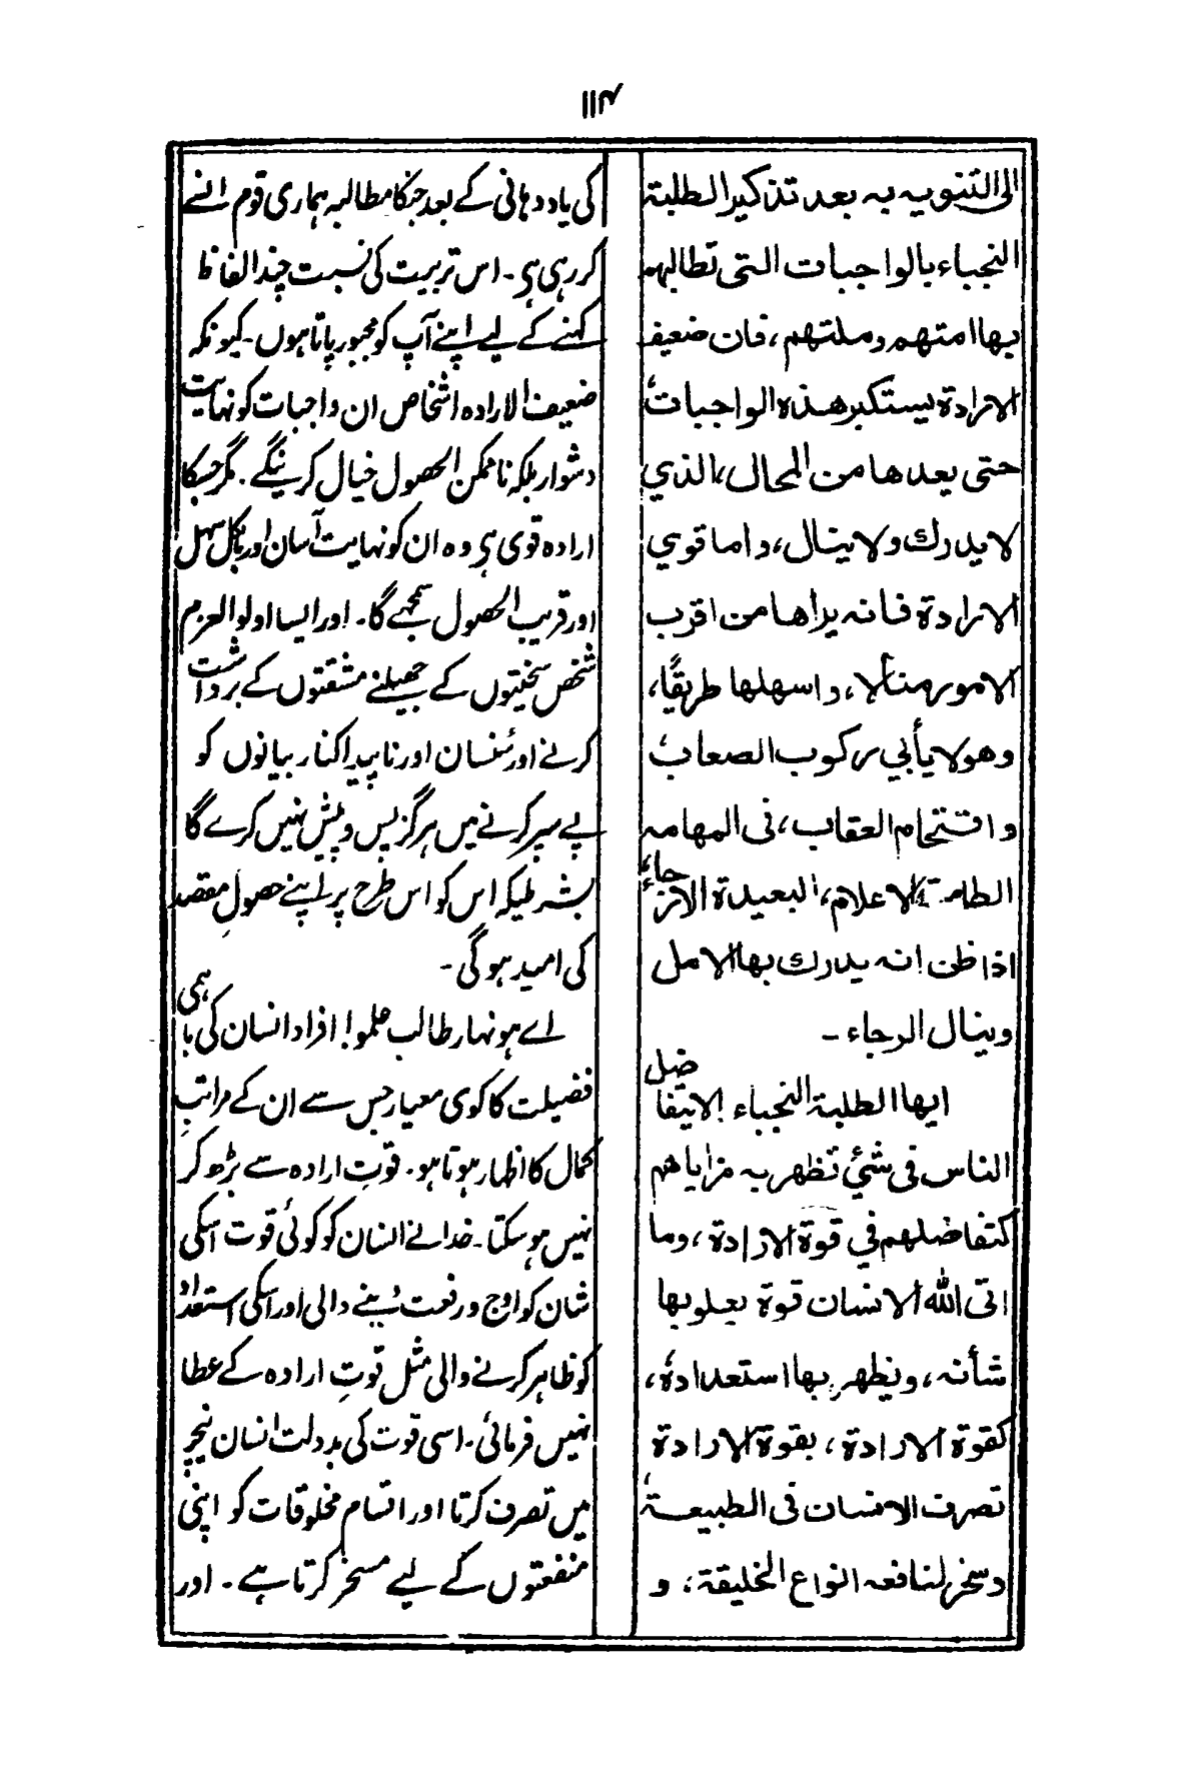 ۱۱۴
الی التنویہ بہ بعد تذکیر الطلبۃ
النجباء بالواجبات التی تطالبہم
بہا امتہم وملتہم، فان ضعیف
الارادۃ یستکبر ھذہ الواجبات،
حتی یعدھا من المحال، الذي
لا یدرك ولا ینال، واما قوي
الارادۃ فانہ یراھا من اقرب
الامور منالا، واسھلھا طریقًا،
وھو لا یأبي رکوب الصعاب،
واقتحام العقاب، فی المھامہ
الطامسۃ الاعلام، البعیدۃ الارجاء،
اذا ظن انہ یدرك بھا الامل
وینال الرجاء ـ
ایھا الطلبۃ النجباء! لا یتفاضل
الناس فی شئ تظھر بہ مزایاھم
کتفاضلھم في قوۃ الارادۃ، وما
اتی اللہ الانسان قوۃ یعلو بھا
شأنہ، ویظھر بھا استعدادہٗ،
کقوۃ الارادۃ، بقوۃ الارادۃ
تصرف الانسان فی الطبیعۃ،
وسخر لمنافعہ انواع الخلیقۃ، و
کی یاد دہانی کے بعد جنکا مطالبہ ہماری قوم انسے
کر رہی ہی۔ اس تربیت کی نسبت چند الفاظ
کہنے کے لیے اپنے آپ کو مجبور پاتا ہوں۔ کیونکہ
ضعیف الارادہ اشخاص ان واجبات کو نہایت
دشوار بلکہ ناممکن الحصول خیال کرینگے۔ مگر جسکا
ارادہ قوی ہی وہ ان کو نہایت آسان اور بالکل سہل
اور قریب الحصول سمجھے گا۔ اور ایسا اولو العزم
شخص سختیوں کے جھیلنے مشقتوں کے برداشت
کرنے اور سُنسان اور ناپیدا کنار بیابانوں کو
پے سپر کرنے میں ہرگز پس و پیش نہیں کرے گا
بشرطیکہ اس کو اس طرح پر اپنے حصولِ مقصد
کی امید ہوگی۔
اے ہونہار طالب علمو! افراد انسان کی باہمی
فضیلت کا کوی معیار جس سے ان کے مراتبِ
کمال کا اظہار ہوتا ہو۔ قوتِ ارادہ سے بڑھ کر
نہیں ہوسکتا۔ خدا نے انسان کو کوئی قوت اسکی
شان کو اوج و رفعت دینے والی اور اسکی استعداد
کو ظاہر کرنے والی مثل قوتِ ارادہ کے عطا
نہیں فرمائی۔ اسی قوت کی بدولت انسان نیچر
میں تصرف کرتا اور اقسام مخلوقات کو اپنی
منفعتوں کے لیے مسخر کرتا ہے۔ اور